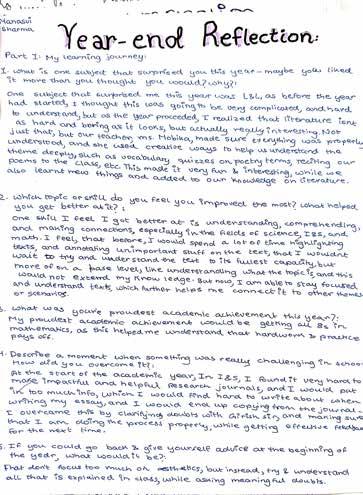 Manasvi
Sharma
Year-end Reflection:
Part I: My learning journey:
1. what is one subject that surprised you this year - maybe you liked
it more than you thought you would? why?:
One subject that surprised me this year was L&L, as before the year
had started, I thought this was going to be very complicated, and hard
to understand, but as the year proceeded, I realized that literature isnt
as hard and boring as it looks, but actually really interesting. Not
just that, but our teacher, ms. made sure everything was properly
understood, and she used creative ways to help us understand the
theme deeply, such as vocabulary quizzes on poetry terms, reciting our
poems to the class, etc. This made it very fun & interesting, while we
also learnt new things and added to our knowledge on literature.
2. which topic or skill do you feel you improved the most? what helped
you get better at it? :
One skill I feel I got better at is understanding, comprehending,
and making connections, especially in the fields of science, I&S, and
math. I feel, that before, I would spend a lot of time highlighting
texts, and annotating unimportant stuff on the text, that I wouldnt
wait to try and understand the text to its fullest capacity, but
more of on a base level, like understanding what the topic is, and this
would not extend my knowledge. But now, I am able to stay focused
and understand texts, which further helps me connect it to other themes
or scenarios.
what was you're proudest academic achievement this year?:
My proudest academic achievement would be getting all 8s in
mathematics, as this helped me understand that hardwork & practice
pays off.
4. Describe a moment when something was really challenging in school
How did you overcome it?:
At the start of the academic year, In I&S, I found it very hard to
make impactful and helpful research journals, and I would put
in too much info, which I would find hard to write about when
writing my essay, and I would end up copying from the journal.
I overcame this by clarifying doubts with Girish sir, and making sure
that I am doing the process properly, while getting effective feedback
for the next time.
5. If you could go back & give yourself advice at the beginning of
the year, what would it be?:
That dont focus too much on aesthetics, but instead, try & understand
all that is explained in class, while asking meaningful doubts.